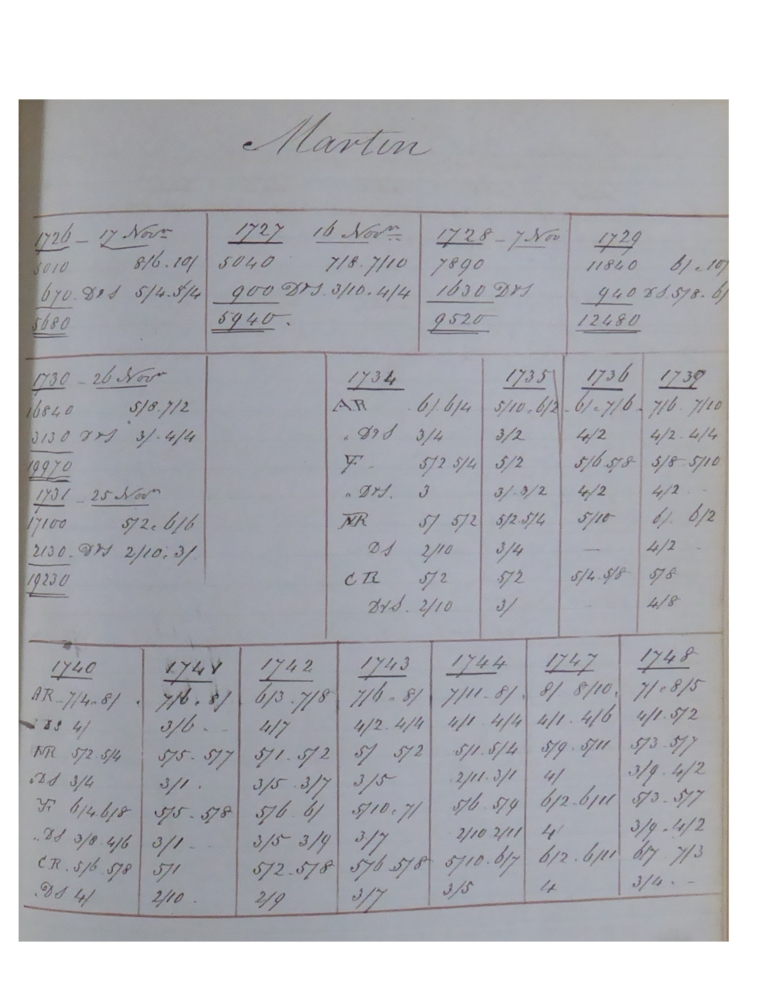 Martin
1726 - 17 Novr
5010 8/6 . 10/
670 . DrS 5/4 . 5/4
5680
1727 16 Novr
5040 7/8 . 7/10
900 DrS . 3/10 . 4/4
5940 .
1728 - 7 Nov
7890
1630 DrS
9520
1729
11840 6/ . 10/
940 DS . 5/8 . 6/
12480
1730 - 26 Novr
16840 5/8 . 7/2
3130 DrS 3/ . 4/4
19970
1731 - 25 Novr
17100 5/2 . 6/6
2130 . DrS 2/10 . 3/
19230
1734 1735 1736 1739
AR . 6/ . 6/4 5/10 . 6/2 6/ . 7/6 7/6 . 7/10
" DrS 3/4 3/2 4/2 4/2 . 4/4
F . 5/2 5/4 5/2 5/6 . 5/8 5/8 . 5/10
" DrS . 3 3/ . 3/2 4/2 4/2 . -
NR 5/ 5/2 5/2 . 5/4 5/10 6/ . 6/2
DS 2/10 3/4 - 4/2 -
CR 5/2 5/2 5/4 . 5/8 5/8
DrS . 2/10 3/ - 4/8
1740 1741 1742 1743 1744 1747 1748
AR - 7/4 . 8/ . 7/6 . 8/ 6/3 . 7/8 7/6 . 8/ 7/11 . 8/ . 8/ 8/10 . 7/ . 8/5
DS 4/ 3/6 . - 4/7 4/2 . 4/4 4/1 . 4/4 4/1 . 4/6 4/1 . 5/2
NR 5/2 . 5/4 5/5 . 5/7 5/1 . 5/2 5/ 5/2 5/1 . 5/4 5/9 . 5/11 5/3 . 5/7
DS 3/4 3/1 . 3/5 . 3/7 3/5 2/11 . 3/1 4/ 3/9 . 4/2
F . 6/4 . 6/8 5/5 . 5/8 5/6 . 6/ 5/10 . 7/ 5/6 . 5/9 6/2 . 6/11 5/3 . 5/7
" DS 3/8 . 4/6 3/1 . - 3/5 3/9 3/7 2/10 2/11 4/ 3/9 . 4/2
CR . 5/6 . 5/8 5/1 5/2 . 5/8 5/6 . 5/8 5/10 . 6/7 6/2 . 6/11 6/7 7/3
. DS 4/ 2/10 . 2/9 3/7 3/5 4 3/4 . -